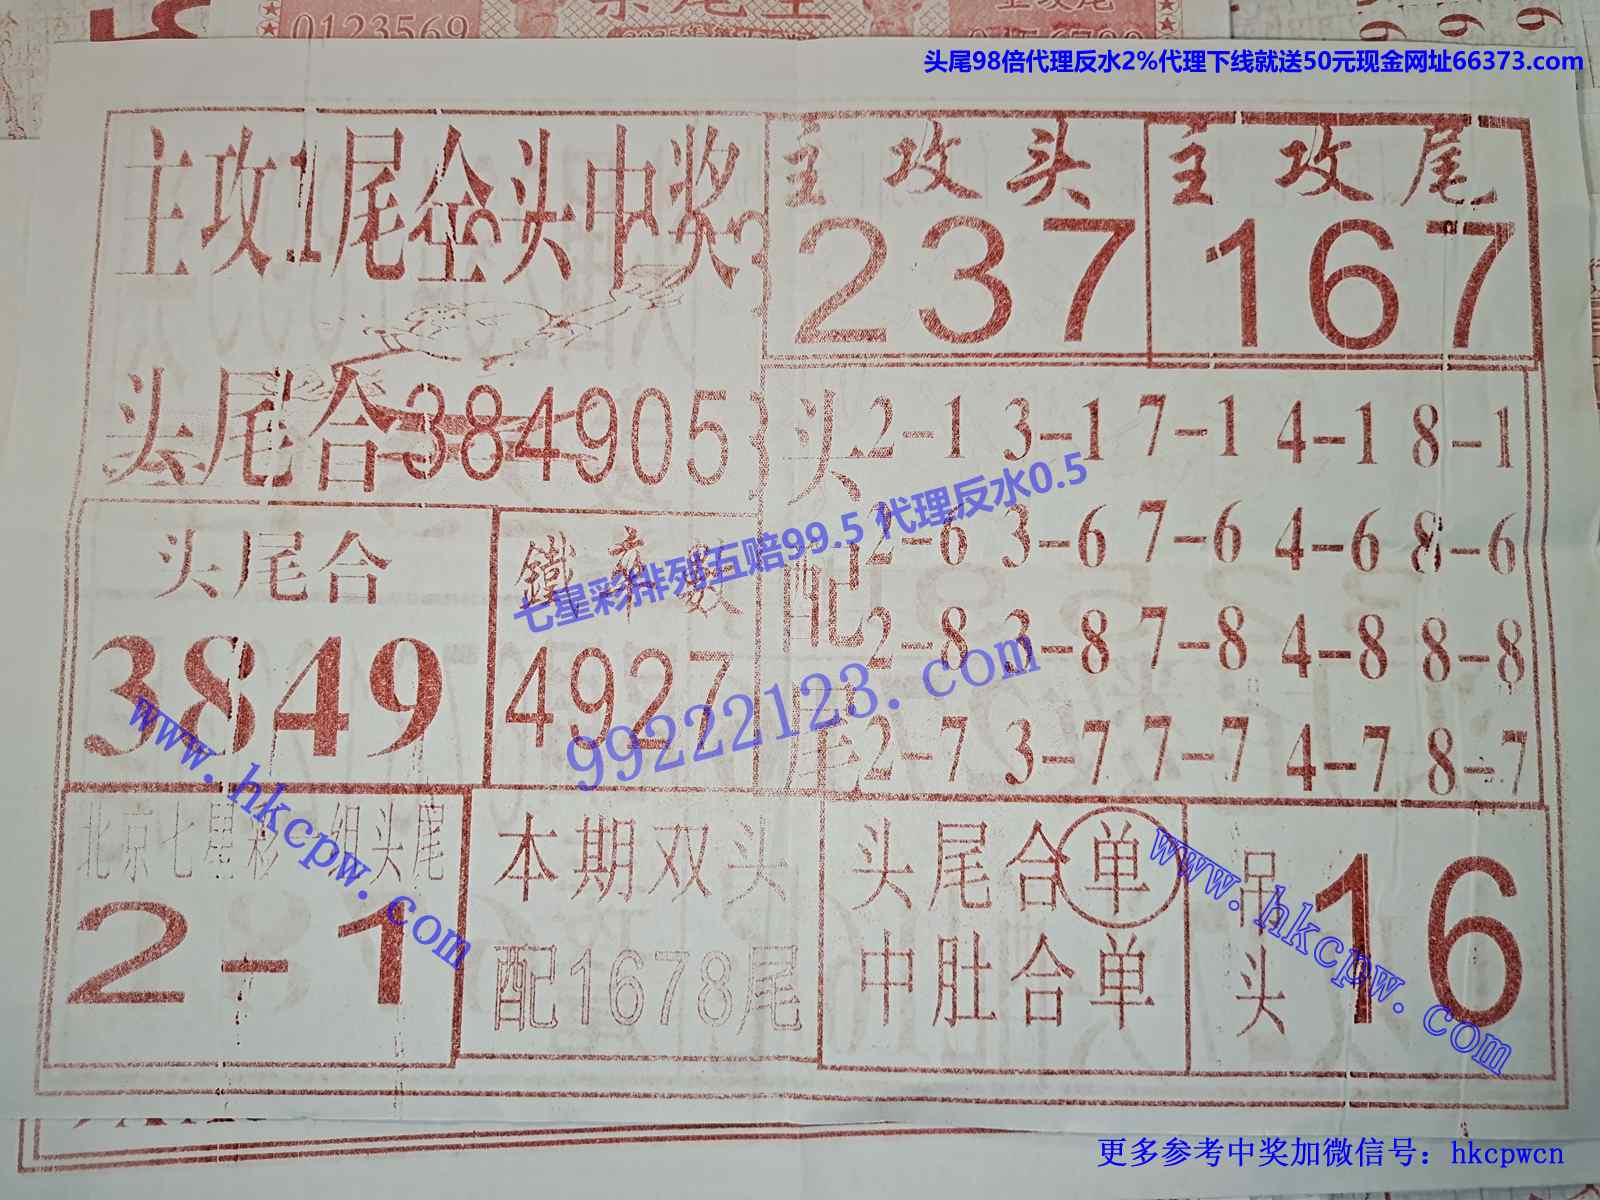 0123569
头尾98倍代理反水2%代理下线就送50元现金网址66373.com
主攻1尾全头中奖
主攻头
237
主攻尾
167
头尾合384905
头配尾
2-1 3-1 7-1 4-1 8-1
2-6 3-6 7-6 4-6 8-6
2-8 3-8 7-8 4-8 8-8
2-7 3-7 7-7 4-7 8-7
头尾合
3849
鐵率数
4927
七星彩排列五赔99.5 代理反水0.5
99222123.com
www.hkcpw.com
北京七星彩一组头尾
2-1
本期双头
配1678尾
头尾合单
中肚合单
吊头
16
www.hkcpw.com
更多参考中奖加微信号：hkcpwcn